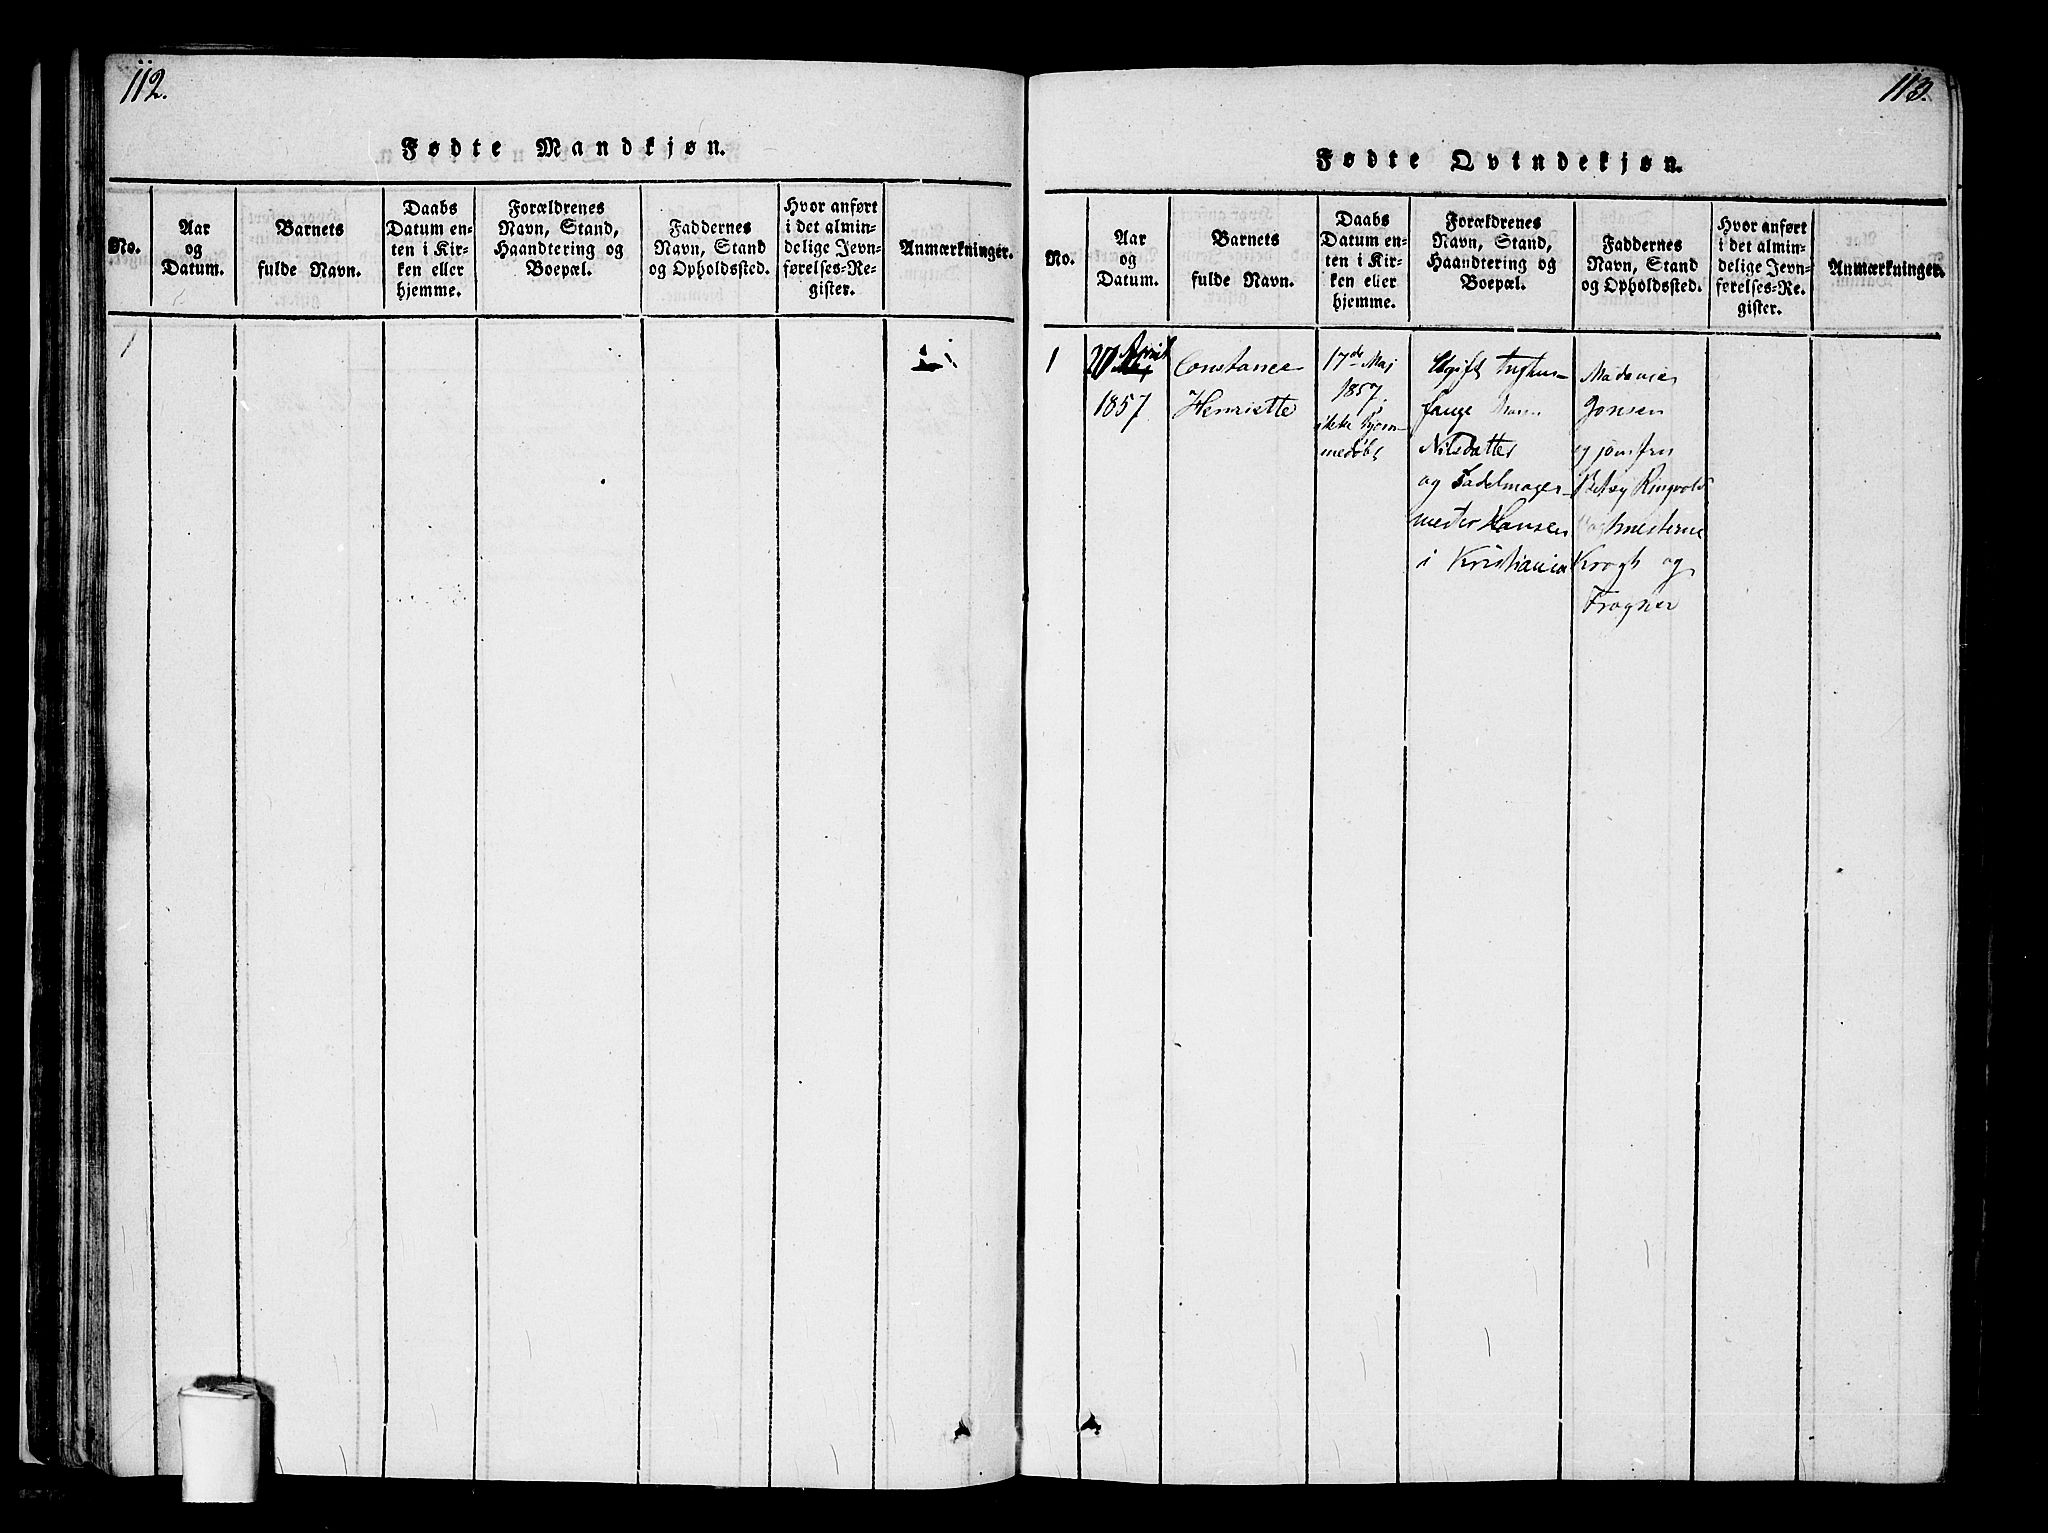 112.
Fødte Mandkjøn.
No.
Aar
og
Datum.
Barnets
fulde Navn.
Daabs
Datum en-
ten i Kir-
ken eller
hjemme.
Forældrenes
Navn, Stand,
Haandtering og
Boepæl.
Faddernes
Navn, Stand
og Opholdssted.
Hvor anført
i det almin-
delige Jevn-
førelses-Re-
gister.
Anmærkninger.
1
113.
Fødte Qvindekjøn.
No.
Aar
og
Datum.
Barnets
fulde Navn.
Daabs
Datum en-
ten i Kir-
ken eller
hjemme.
Forældrenes
Navn, Stand,
Haandtering og
Boepæl.
Faddernes
Navn, Stand
og Opholdssted.
Hvor anført
i det almin-
delige Jevn-
førelses-Re-
gister.
Anmærkninger.
1
20 April
1857
Constance
Henriette
17de Maj
1857,
ikke hjem-
medøbt
Ugift Tugthus-
fange
Nilsdatter
og Sadelmager-
mester Hansen
i Kristiania
Madamer
Jonsen
og jomfru
Betsy Ringvold
Krogh og
Frogner